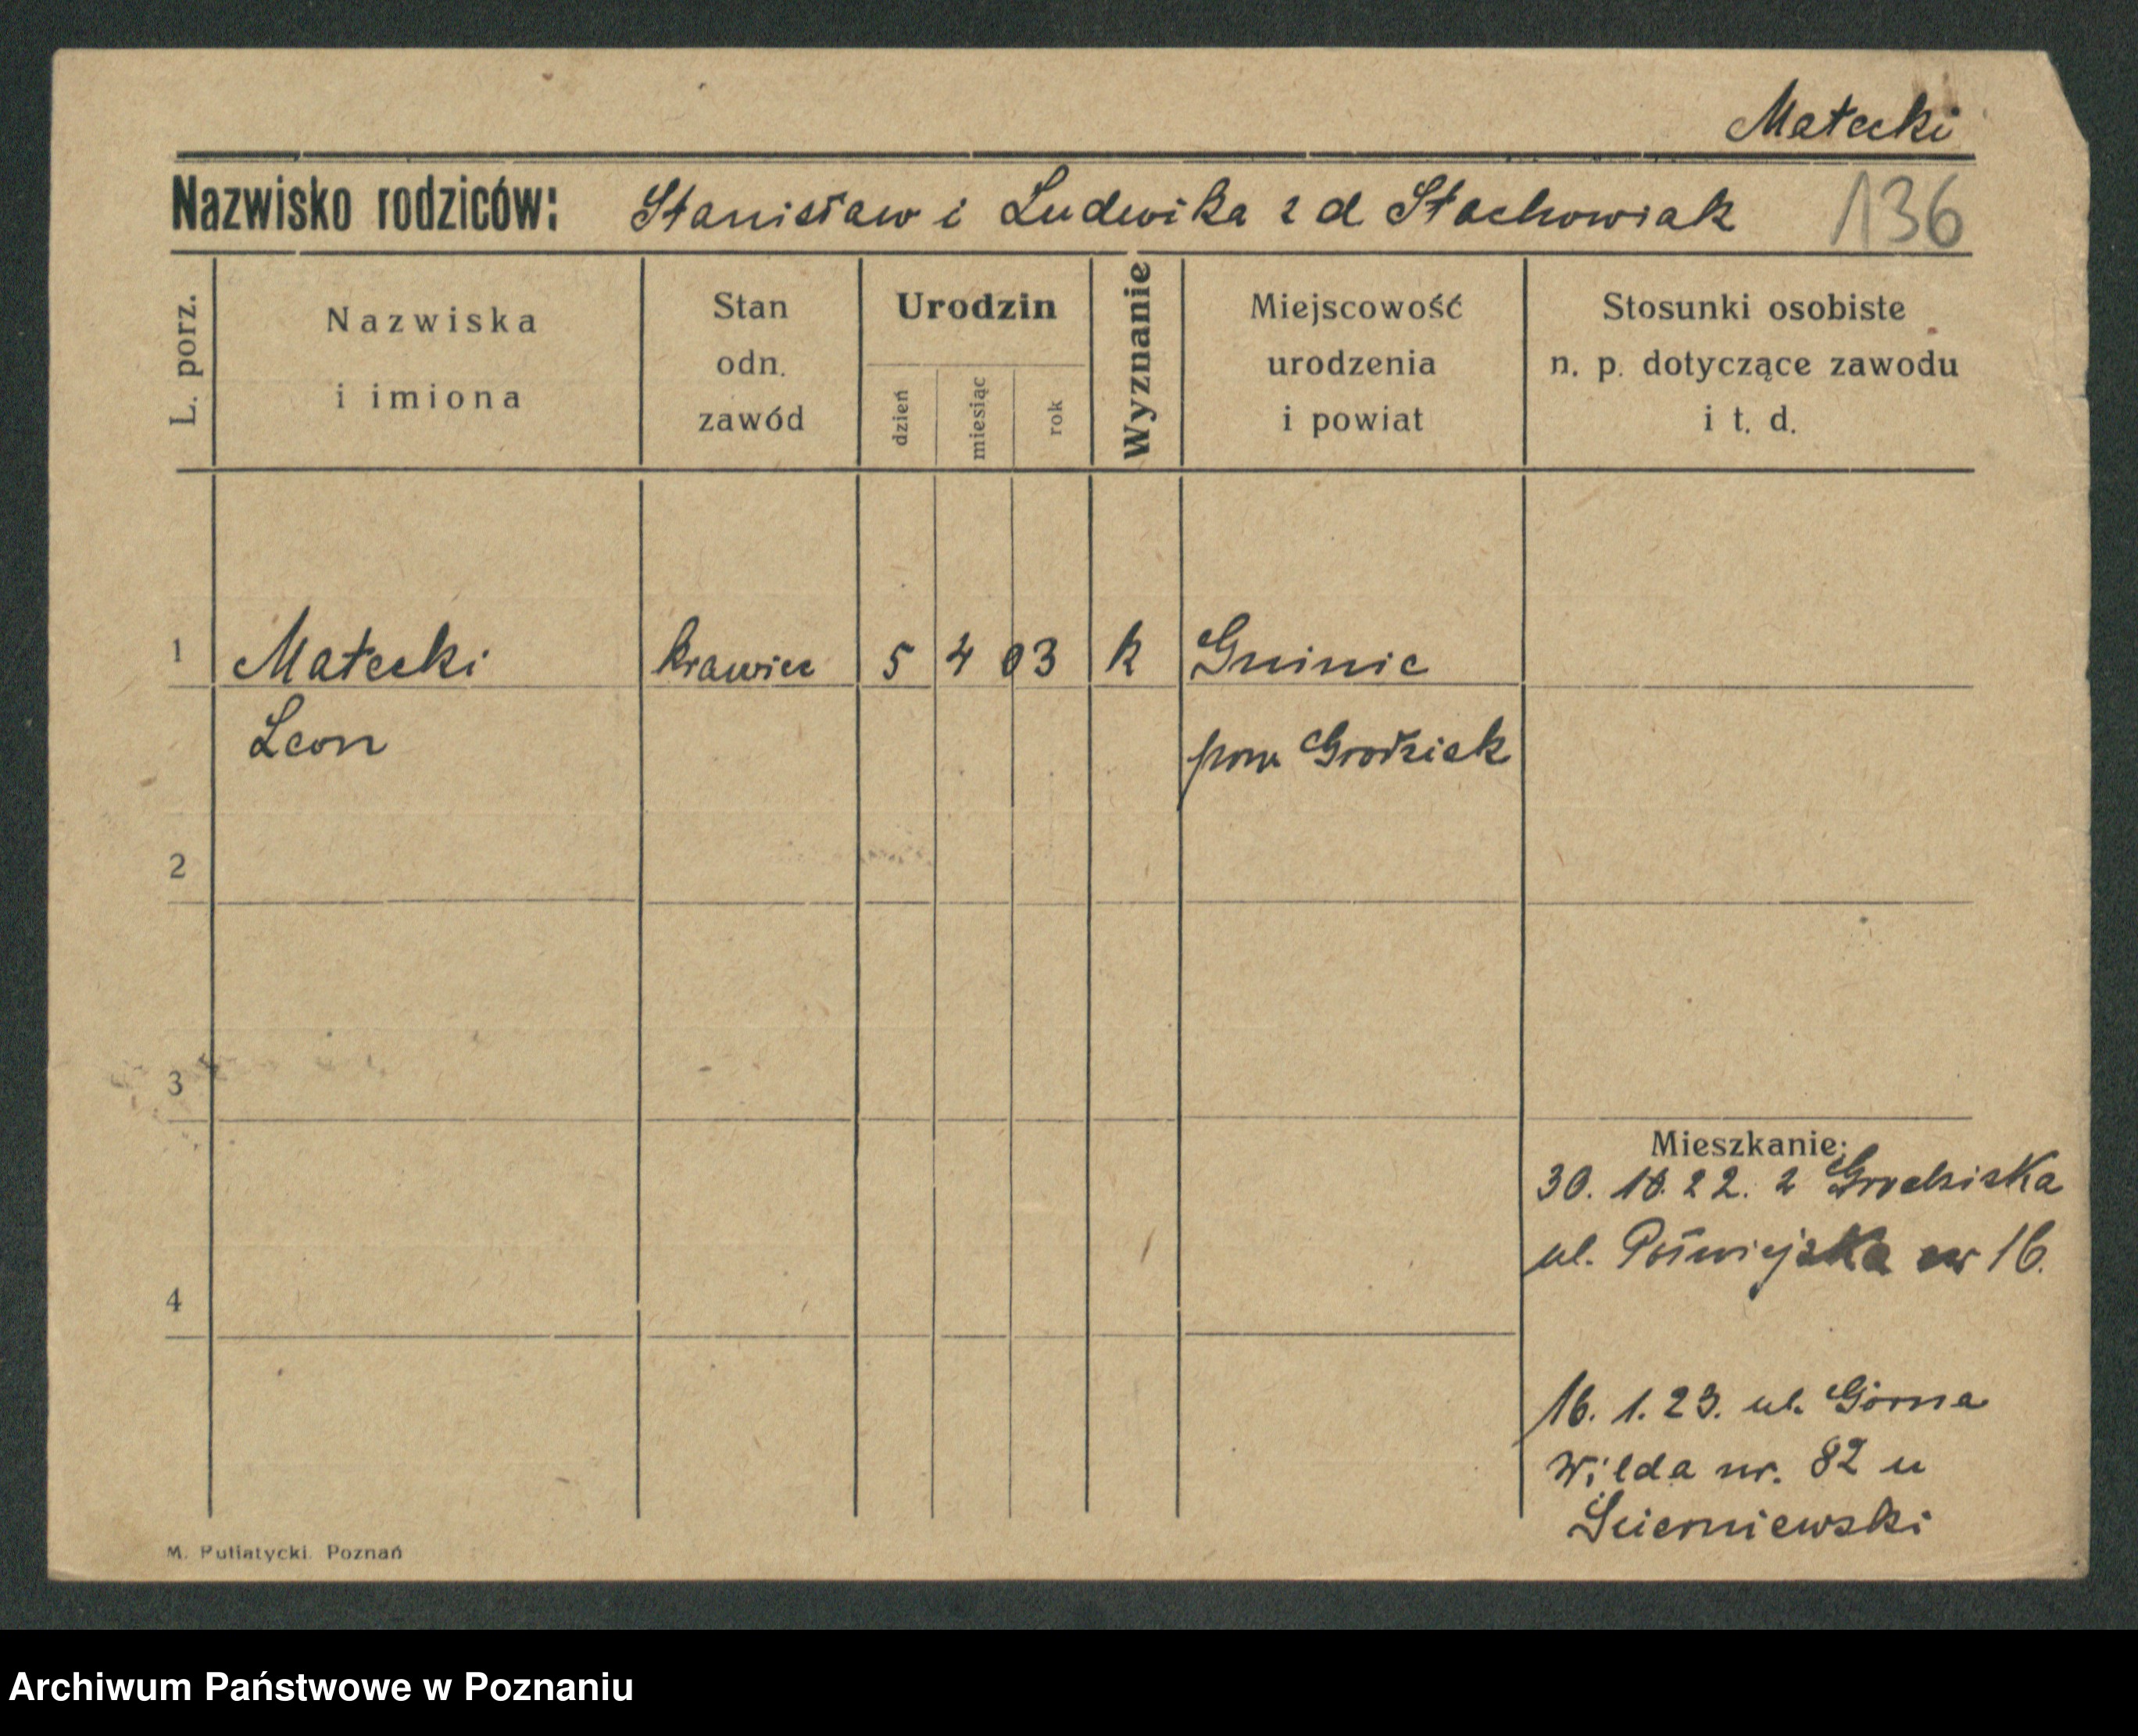 Małecki
Nazwisko rodziców: Stanisław i Ludwika z d Stachowiak 136
L. porz.
Nazwiska
i imiona
Stan
odn.
zawód
Urodzin
dzień
miesiąc
rok
Wyznanie
Miejscowość
urodzenia
i powiat
Stosunki osobiste
n. p. dotyczące zawodu
i t. d.
1 Małecki krawiec 5 4 03 k Gninie
Leon pow Grodzisk
2
3
Mieszkanie:
30. 10. 22. z Grodziska
ul. Półwiejska nr 16.
4
16. 1. 23. ul. Górna
Wilda nr. 82 u
Scierniewski
M. Putiatycki. Poznań
Archiwum Państwowe w Poznaniu